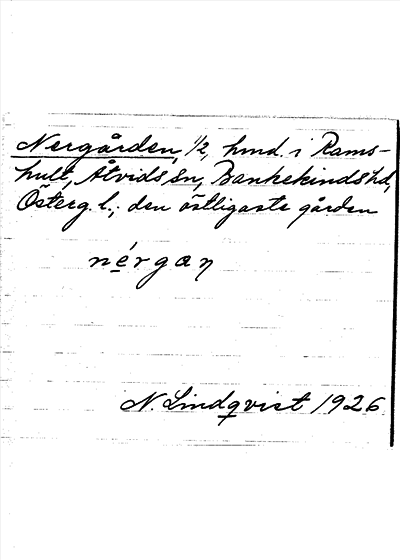 Nergården, 1/2, hmd. i Rams-
hult, Åtvids sn, Bankekinds hd,
Österg. l.; den östligaste gården
nérgaη
N. Lindqvist 1926